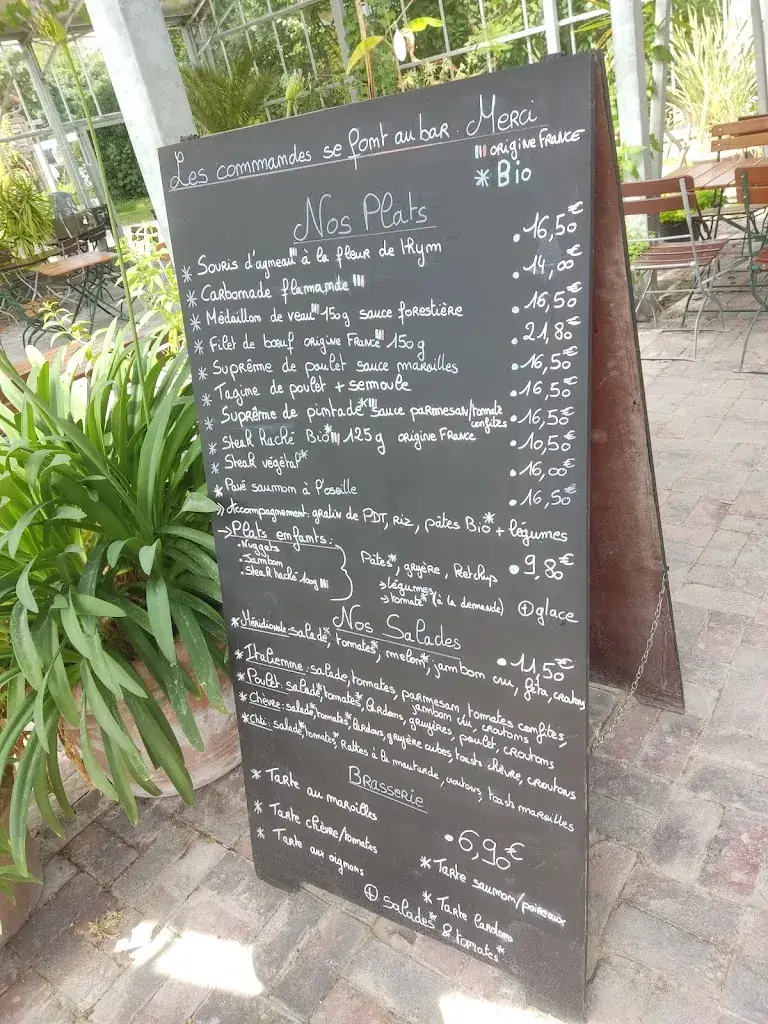 Les commandes se font au bar. Merci
origine FRANCE
* Bio
Nos Plats
* Souris d'agneau à la fleur de thym • 16,50€
* Carbonnade flamande • 14,00€
* Médaillon de veau 150g sauce forestière • 16,50€
* Filet de bœuf origine France 150g • 21,80€
* Suprême de poulet sauce maroilles • 16,50€
* Tagine de poulet + semoule • 16,50€
* Suprême de pintade* sauce parmesan/tomate confites • 16,50€
* Steak Haché Bio* 125g origine France • 10,50€
* Steak végétal* • 16,00€
* Pavé saumon à l'oseille • 16,50€
→ Accompagnement: gratin de PDT, riz, pâtes Bio* + légumes
→ Plats enfants:
• Nuggets
• Jambon
• Steak haché 100g
Pâtes*, gruyère, Ketchup • 9,80€
→ légumes
→ tomate* (à la demande) + glace
Nos Salades
• 11,50€
* Méridionale: salade*, tomates*, melon*, jambon cru, féta, croutons
* Italienne: salade, tomates, parmesan, tomates confites, jambon cru, croutons
* Poulet: salade*, tomates*, lardons, gruyères, poulet, croutons
* Chèvre: salade*, tomate*, lardons, gruyère cubes, toast chèvre, croutons
* Chti: salade*, tomates*, Rattes à la moutarde, toast maroilles
Brasserie
• 6,90€
* Tarte au maroilles
* Tarte chèvre/tomates
* Tarte aux oignons
* Tarte saumon/poireaux
* Tarte lardons
+ salades* & tomates*